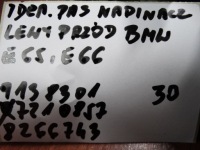 IDEN. PAS NAPINACZ
LEWY PRZÓD BMW
E65, E66
9138301 30
X7210857
8266743